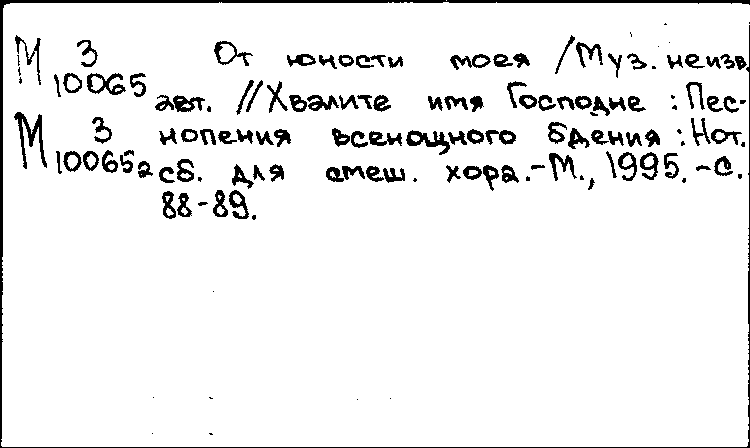 М 3 От юности моея / Муз. неизв.
10065 авт. // Хвалите имя Господне : Пес-
М 3 нопения всенощного бдения : Нот.
10065а сб. для смеш. хора. - М., 1995. - С.
88-89.